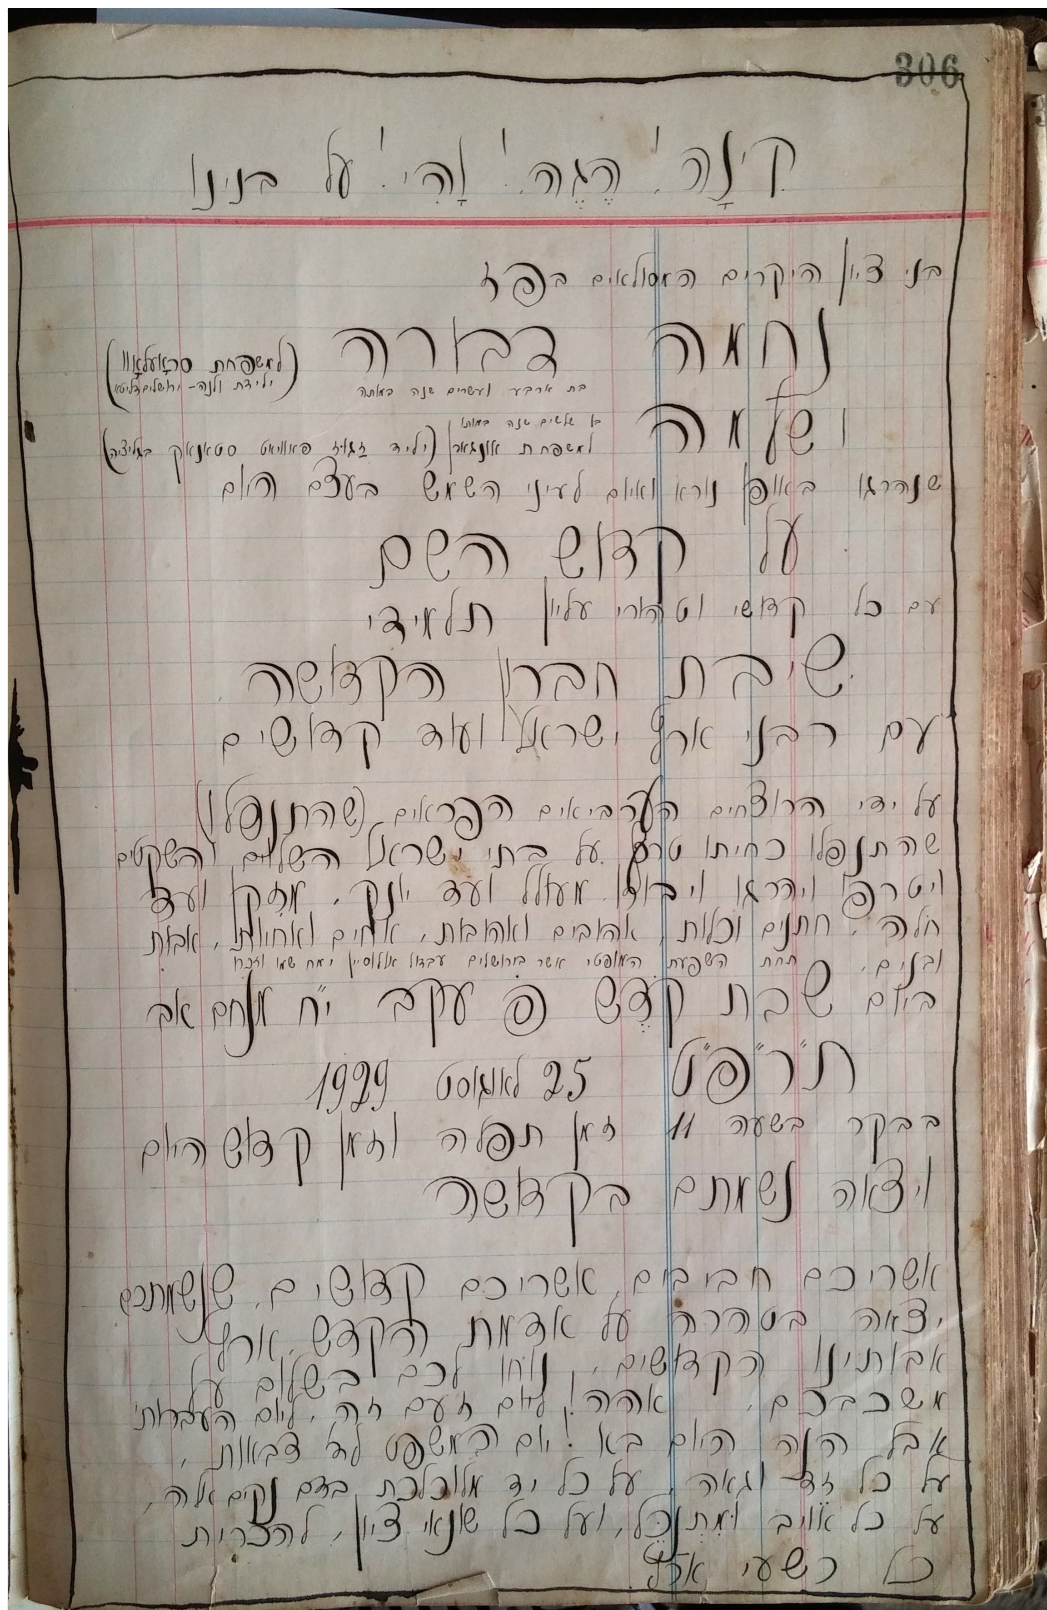 306
קִינָה! הֶגֶה! וָהִי! על בנינו
בני ציון היקרים המסולאים בפז
נחמה דבורה
(למשפחת
ילידת וילנה - ירושלים דליטא)
בת ארבע ועשרים שנה במותה
ושלמה
בן שלשים שנה במותו
למשפחת אונגאר (יליד פאוויאט סטאנאק בגליציה)
שנהרגו באופן נורא ואיום לעיני השמש בעצם היום
על קדוש השם
עם כל קדושי וטהורי עליון תלמידי
ישיבת חברון הקדושה
עם רבני ארץ ישראל ועוד קדושים
על ידי הרוצחים הערביאים הפראים (שהתנפלו)
שהתנפלו כחיתו טרף על בתי ישראל השלוים והשקטים
ויטרפו ויהרגו מעולל ועד יונק, מזקן ועד
חולה, חתנים וכלות, אהובים ואהובות, אחים ואחיות, אבות
ובנים. תחת השפעת המופטי אשר בירושלים ימח שמו וזכרו
ביום שבת קֹדֶש פ' עקב י"ח מנחם אב
ת"ר"פ"ט 25 לאוגוסט 1929
בבקר בשעה 11 זמן תפלה וזמן קדוש היום
ויצאה נשמתם בקדושה
אשריכם חביבים, אשריכם קדושים, שנשמתכם
יצאה בטהרה על אדמת הקדש, ארץ
אבותינו הקדושים, נוחו לכם בשלום על
משכבכם, אהה! ליום זעם זה, ליום העברות!
אבל הנה היום בא! יום המשפט לה' צבאות,
על כל זד וגאה, על כל יד מלוכלכת בדם נקיים אלה,
על כל אויב ומתנכל, ועל כל שונאי ציון, להכרית
כל רשעי ארץ